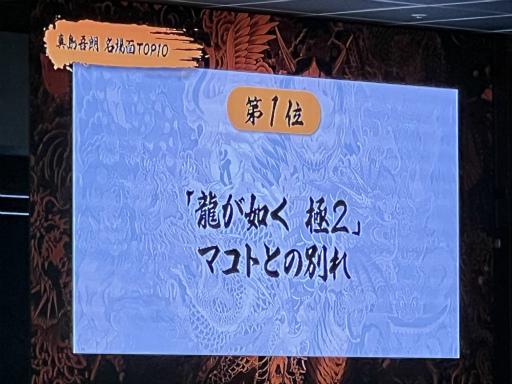 真島吾朗 名場面TOP10
第1位
「龍が如く 極2」
マコトとの別れ